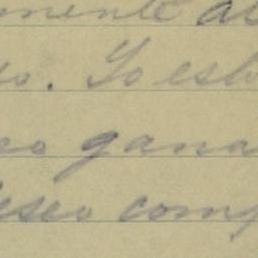 mente al
o. Yo esto
co gana
deseo comp